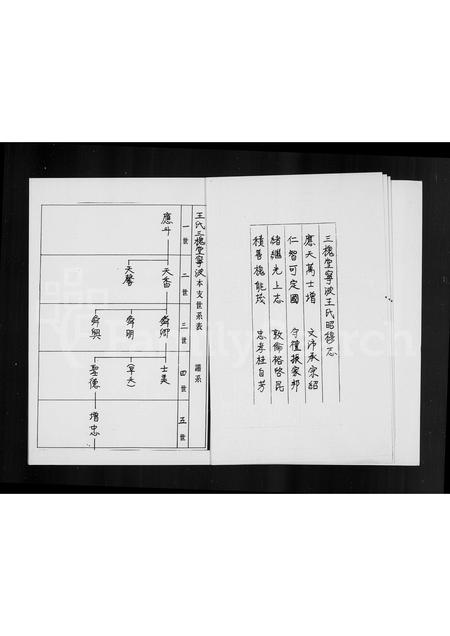 三槐堂寧波王氏昭穆志
應天萬士增 文沛承宗紹
仁智可定國 守禮振家邦
緒繼光上志 敦倫裕啓昆
積善槐能茂 忠孝桂自芳
王氏三槐堂寧波本支世系表 譜系
一世 二世 三世 四世 五世
應斗
天香 天馨
舜卿 舜明 舜興
士美 (早夭) 聖德
增忠
FamilySearch